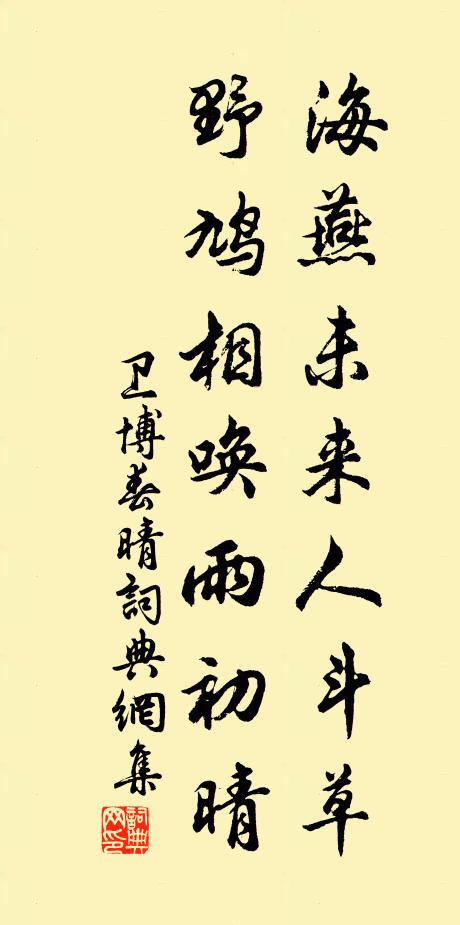 海燕未来人斗草
野鳩相唤雨初晴
卫博春晴詞典網集
詞典网印